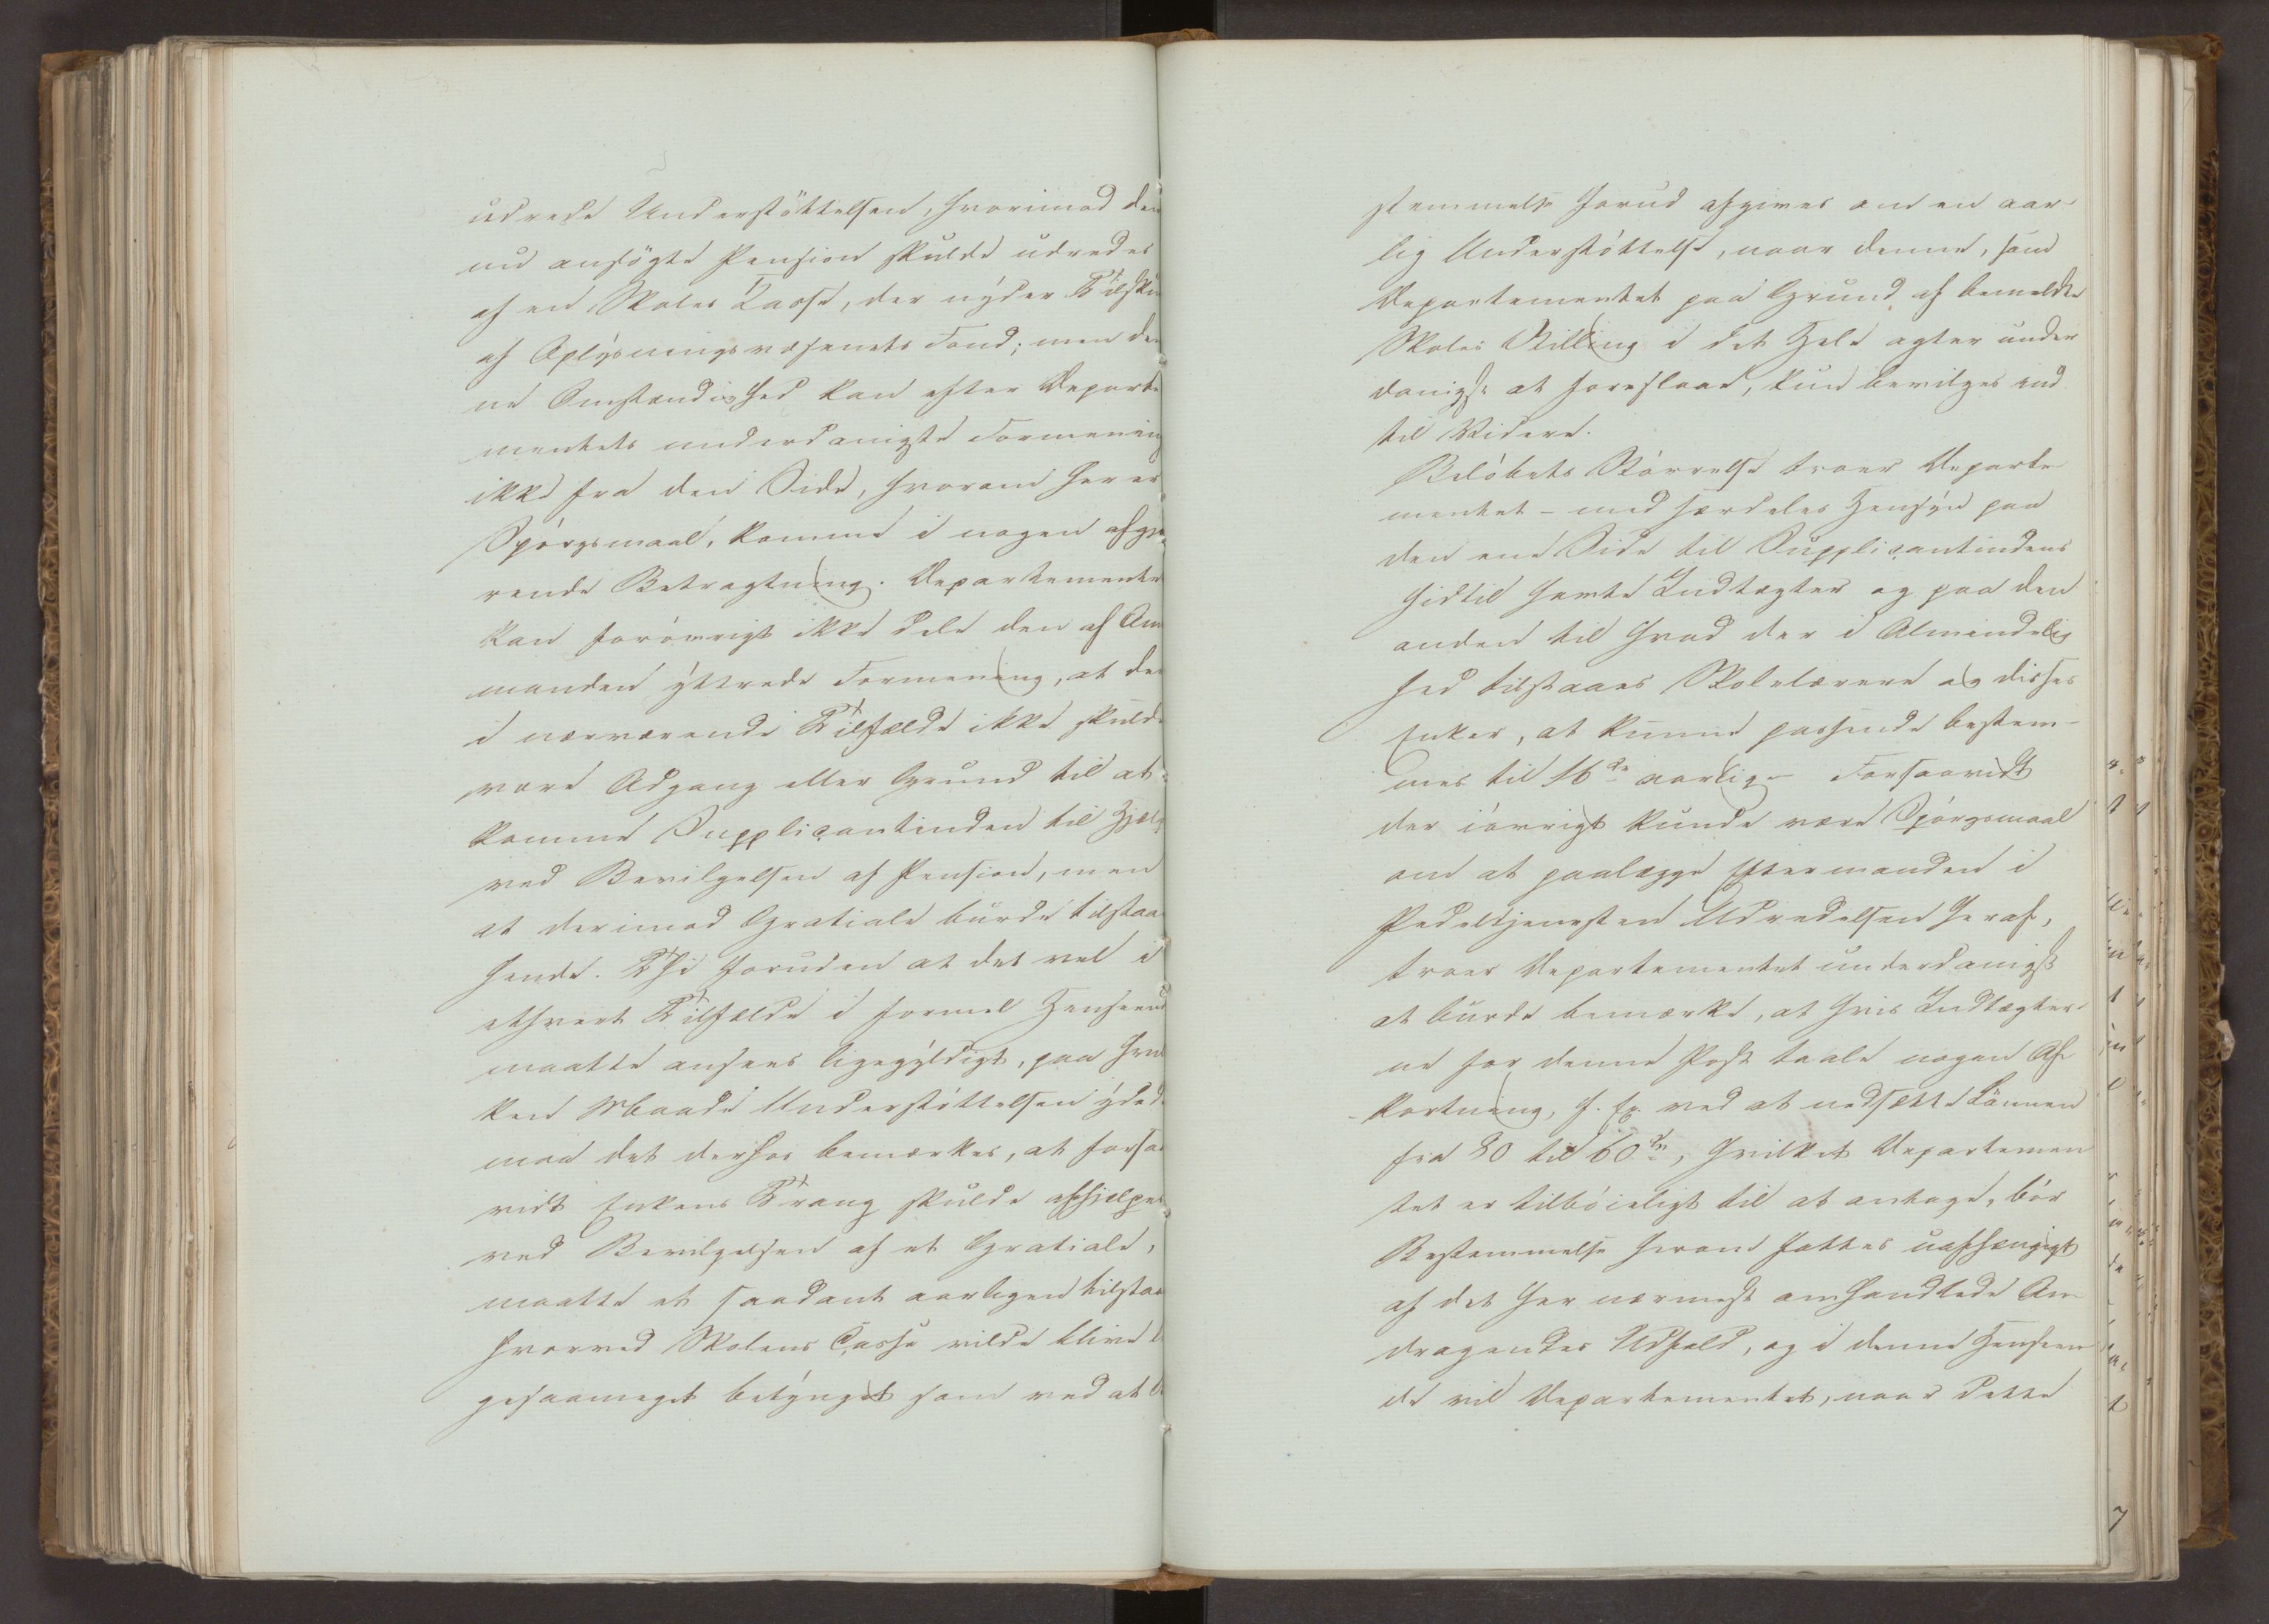 udrede Understöttelsen, hvorimod den
nu ansögte Pension skulde udredes
af en Skoles Kasse, der nyder Tilsku
af Oplysningsvæsenets Fond; men den
ne Omstændighed kan efter Departe
mentets underdanigste Formening
ikke fra den Side, hvorom her er
Spörgsmaal, komme i nogen afgjö
rende Betragtning. Departemente
kan forövrigt ikke dele den af Am
manden yttrede Formening, at der
i nærværende Tilfælde ikke skulde
være Adgang eller Grund til at
komme Supplicantinden til Hjælp
ved Bevilgelsen af Pension, men
at derimod Gratiale burde tilstaa
hende. Thi foruden at det vel i
ethvert Tilfælde i formel Henseend
maatte ansees ligegyldigt, paa hvil
ken Maade Understöttelsen ydede
maa det derhos bemærkes, at forsaa
vidt Enkens Trang skulde afhjelpes
ved Bevilgelsen af et Gratiale,
maatte et saadant aarligen tilstaa
hvorved Skolens Casse vilde blive l
gesaameget betynget som ved at B
stemmelse forud afgives om en aar
lig Understöttelse, naar denne, som
Departementet paa Grund af bemeldte
Skoles Stilling i det Hele agter under
danigst at foreslaae, kun bevilges ind
til Videre.
Belöbets Störrelse troer Departe
mentet - med særdeles Hensyn paa
den ene Side til Supplicantindens
hidtil havte Indtægter og paa den
anden til hvad der i Almindelig
hed tilstaaes Skolelærere og disses
Enker, at kunne passende bestem-
mes til 16 Sp aarlig - Forsaavidt
der iövrigt kunde være Spörgsmaal
om at paalægge Eftermanden i
Pedeltjenesten Udredelsen heraf,
troer Departementet underdanigst
at burde bemærke, at hvis Indtægter
ne for denne Post taale nogen Af
kortning, f. Ex. ved at nedsætte Lönnen
fra 80 til 60 Sp, hvilket Departemen
tet er tilböieligt til at antage, bör
Bestemmelse herom fattes uafhængigt
af det her nærmest omhandlede An
dragendes Udfald, og i denne Henseen
de vil Departementet, naar dette